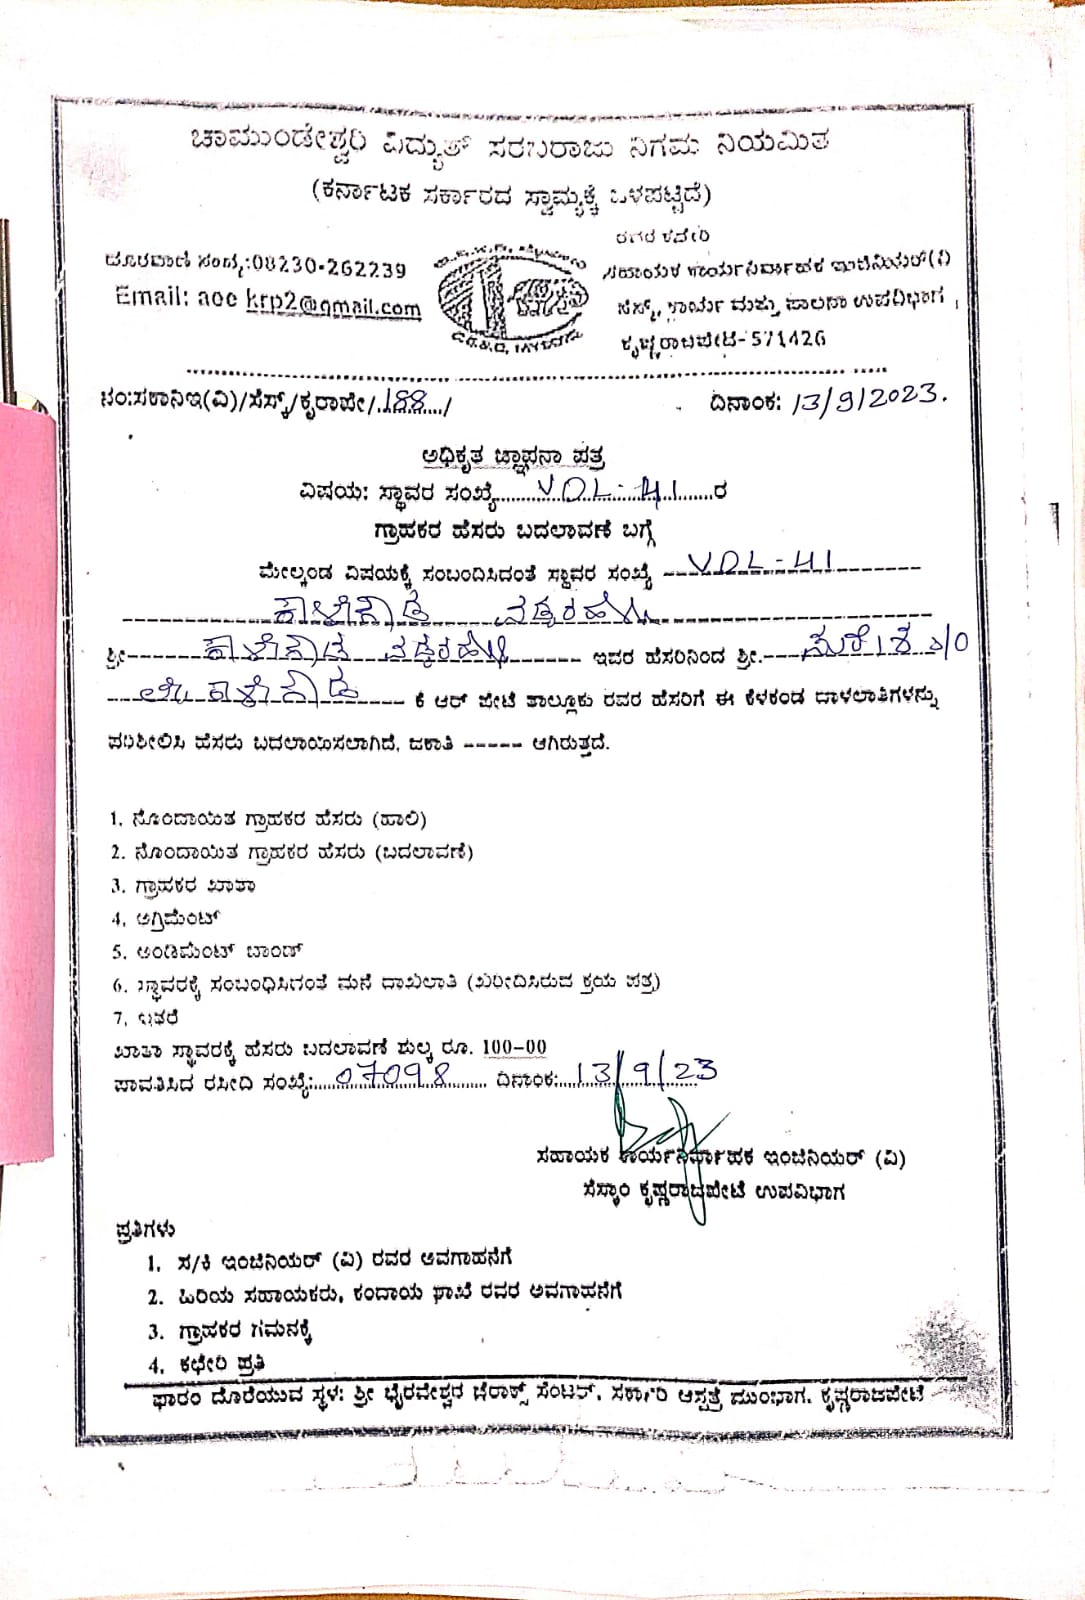 ಚಾಮುಂಡೇಶ್ವರಿ ವಿದ್ಯುತ್ ಸರಬರಾಜು ನಿಗಮ ನಿಯಮಿತ
(ಕರ್ನಾಟಕ ಸರ್ಕಾರದ ಸ್ವಾಮ್ಯಕ್ಕೆ ಒಳಪಟ್ಟಿದೆ)
ದೂರವಾಣಿ ಸಂಖ್ಯ:08230-262239
Email: aee krp2@gmail.com
ಸಹಾಯಕ ಕಾರ್ಯನಿರ್ವಾಹಕ ಇಂಜಿನಿಯರ್(ವಿ)
ಸೆಸ್ಕ್, ಕಾರ್ಯ ಮತ್ತು ಪಾಲನಾ ಉಪವಿಭಾಗ,
ಕೃಷ್ಣರಾಜಪೇಟೆ-571426
ನಂ:ಸಕಾನಿಇ(ವಿ)/ಸೆಸ್ಕ್/ಕೃರಾಪೇ/.188.../
ದಿನಾಂಕ: 13/9/2023.
ಅಧಿಕೃತ ಜ್ಞಾಪನಾ ಪತ್ರ
ವಿಷಯ: ಸ್ಥಾವರ ಸಂಖ್ಯೆ......VDL-41......ರ
ಗ್ರಾಹಕರ ಹೆಸರು ಬದಲಾವಣೆ ಬಗ್ಗೆ
ಮೇಲ್ಕಂಡ ವಿಷಯಕ್ಕೆ ಸಂಬಂದಿಸಿದಂತೆ ಸ್ಥಾವರ ಸಂಖ್ಯೆ --VDL-41------
ಕಾಳೇಗೌಡ ವಡ್ಕರಹಳ್ಳಿ
ಶ್ರೀ------ಕಾಳೇಗೌಡ ವಡ್ಕರಹಳ್ಳಿ------ ಇವರ ಹೆಸರಿನಿಂದ ಶ್ರೀ.---ಸುರೇಶ s/O
---ಲೇ. ಕಾಳೇಗೌಡ--- ಕೆ ಆರ್ ಪೇಟೆ ತಾಲ್ಲೂಕು ರವರ ಹೆಸರಿಗೆ ಈ ಕೆಳಕಂಡ ದಾಳಲಾತಿಗಳನ್ನು
ಪರಿಶೀಲಿಸಿ ಹೆಸರು ಬದಲಾಯಿಸಲಾಗಿದೆ, ಜಕಾತಿ ----- ಆಗಿರುತ್ತದೆ.
1. ನೊಂದಾಯಿತ ಗ್ರಾಹಕರ ಹೆಸರು (ಹಾಲಿ)
2. ನೊಂದಾಯಿತ ಗ್ರಾಹಕರ ಹೆಸರು (ಬದಲಾವಣೆ)
3. ಗ್ರಾಹಕರ ಖಾತಾ
4, ಅಗ್ರಿಮೆಂಟ್
5. ಅಂಡಿಮೆಂಟ್ ಬಾಂಡ್
6. ಸ್ಥಾವರಕ್ಕೆ ಸಂಬಂಧಿಸಿದಂತೆ ಮನೆ ದಾಖಲಾತಿ (ಖರೀದಿಸಿರುವ ಕ್ರಯ ಪತ್ರ)
7, ಇತರೆ
ಖಾತಾ ಸ್ಥಾವರಕ್ಕೆ ಹೆಸರು ಬದಲಾವಣೆ ಶುಲ್ಕ ರೂ. 100-00
ಪಾವತಿಸಿದ ರಸೀದಿ ಸಂಖ್ಯೆ:....07098...... ದಿನಾಂಕ:...13/9/23
ಸಹಾಯಕ ಕಾರ್ಯನಿರ್ವಾಹಕ ಇಂಜಿನಿಯರ್ (ವಿ)
ಸೆಸ್ಕಾಂ ಕೃಷ್ಣರಾಜಪೇಟೆ ಉಪವಿಭಾಗ
ಪ್ರತಿಗಳು
1. ಸ/ಕಿ ಇಂಜಿನಿಯರ್ (ವಿ) ರವರ ಅವಗಾಹನೆಗೆ
2. ಹಿರಿಯ ಸಹಾಯಕರು, ಕಂದಾಯ ಶಾಖೆ ರವರ ಅವಗಾಹನೆಗೆ
3. ಗ್ರಾಹಕರ ಗಮನಕ್ಕೆ
4. ಕಛೇರಿ ಪ್ರತಿ
ಫಾರಂ ದೊರೆಯುವ ಸ್ಥಳ: ಶ್ರೀ ಭೈರವೇಶ್ವರ ಜೆರಾಕ್ಸ್ ಸೆಂಟರ್, ಸರ್ಕಾರಿ ಆಸ್ಪತ್ರೆ ಮುಂಭಾಗ, ಕೃಷ್ಣರಾಜಪೇಟೆ